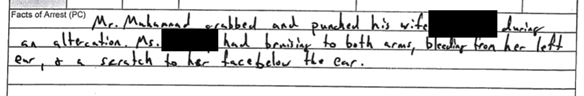 Facts of Arrest (PC)
Mr. Muhammad grabbed and punched his wife during
an altercation. Ms. had bruising to both arms, bleeding from her left
ear, & a scratch to her face below the ear.